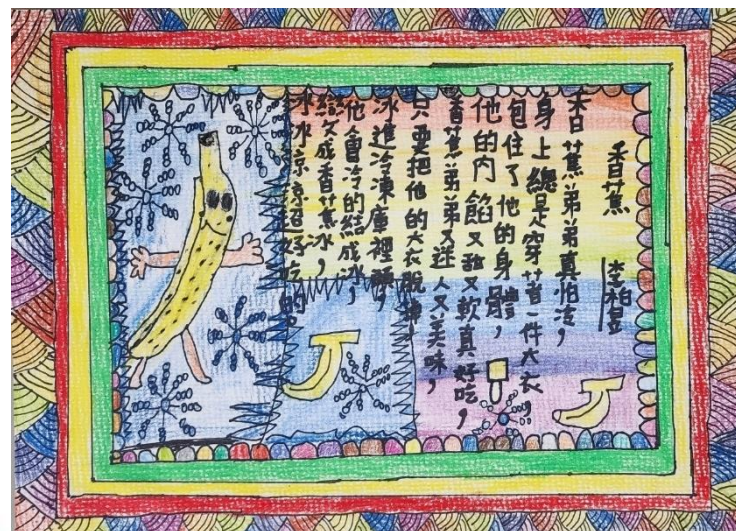 香蕉
李柏昱
香蕉弟弟真怕冷，
身上總是穿著一件大衣，
包住了他的身體，
他的內餡又甜又軟真好吃，
香蕉弟弟又迷人又美味，
只要把他的大衣脫掉，
冰進冷凍庫裡頭，
他會冷的結成冰，
變成香蕉冰，
冰冰涼涼超好吃的。